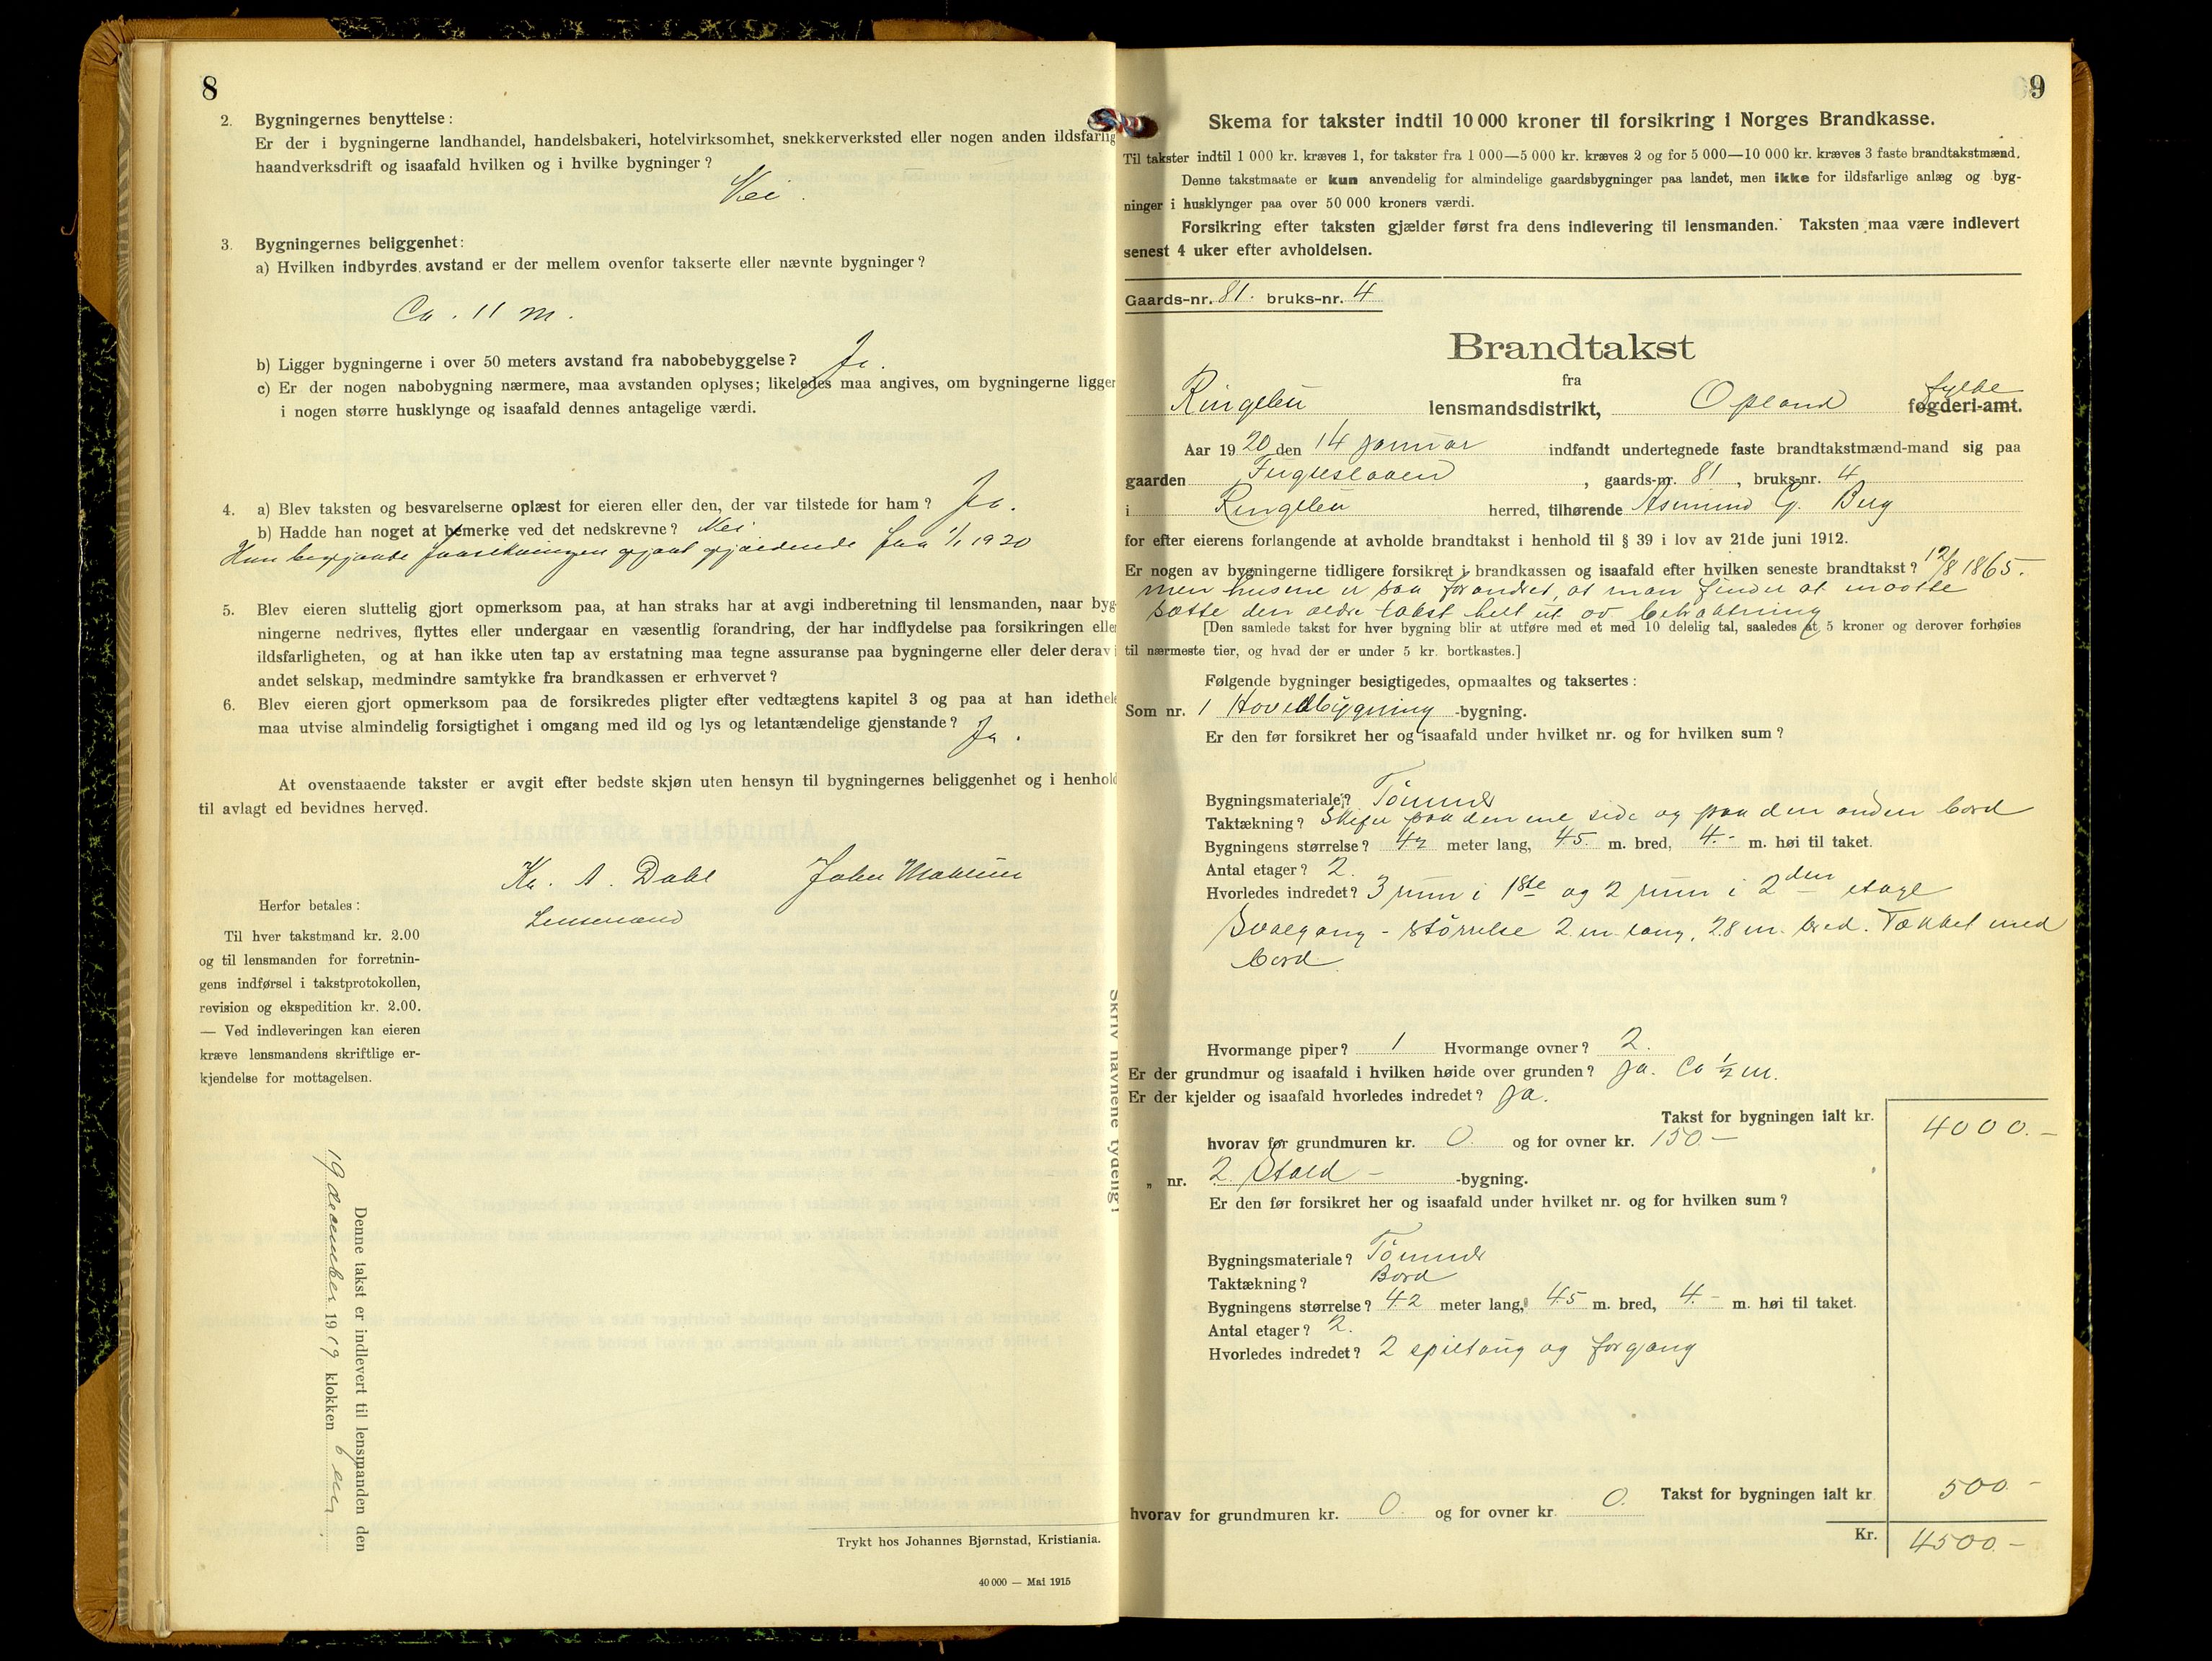 8
2. Bygningernes benyttelse:
Er der i bygningerne landhandel, handelsbakeri, hotelvirksomhet, snekkerverksted eller nogen anden ildsfarlig
haandverksdrift og isaafald hvilken og i hvilke bygninger?
Nei.
3. Bygningernes beliggenhet:
a) Hvilken indbyrdes avstand er der mellem ovenfor takserte eller nævnte bygninger?
Ca. 11 m.
b) Ligger bygningerne i over 50 meters avstand fra nabobebyggelse? Ja.
c) Er der nogen nabobygning nærmere, maa avstanden oplyses; likeledes maa angives, om bygningerne ligger
i nogen større husklynge og isaafald dennes antagelige værdi.
4. a) Blev taksten og besvarelserne oplæst for eieren eller den, der var tilstede for ham? Ja.
b) Hadde han noget at bemerke ved det nedskrevne? Nei
Han begjærte forsikringen gjort gjældende fra 1/1 1920
5. Blev eieren sluttelig gjort opmerksom paa, at han straks har at avgi indberetning til lensmanden, naar byg-
ningerne nedrives, flyttes eller undergaar en væsentlig forandring, der har indflydelse paa forsikringen eller
ildsfarligheten, og at han ikke uten tap av erstatning maa tegne assuranse paa bygningerne eller deler derav i
andet selskap, medmindre samtykke fra brandkassen er erhvervet?
6. Blev eieren gjort opmerksom paa de forsikredes pligter efter vedtægtens kapitel 3 og paa at han idethele
maa utvise almindelig forsigtighet i omgang med ild og lys og letantændelige gjenstande? Ja.
At ovenstaaende takster er avgit efter bedste skjøn uten hensyn til bygningernes beliggenhet og i henhold
til avlagt ed bevidnes herved.
Kr. A. Dahl John
Lensmand
Herfor betales:
Til hver takstmand kr. 2.00
og til lensmanden for forretnin-
gens indførsel i takstprotokollen,
revision og ekspedition kr. 2.00.
— Ved indleveringen kan eieren
kræve lensmandens skriftlige er-
kjendelse for mottagelsen.
Skriv navnene tydelig!
Denne takst er indlevert til lensmanden den
19 december 1919 klokken 6 em.
Trykt hos Johannes Bjørnstad, Kristiania.
40 000 — Mai 1915
9
Skema for takster indtil 10 000 kroner til forsikring i Norges Brandkasse.
Til takster indtil 1 000 kr. kræves 1, for takster fra 1 000—5 000 kr. kræves 2 og for 5 000—10 000 kr. kræves 3 faste brandtakstmænd.
Denne takstmaate er kun anvendelig for almindelige gaardsbygninger paa landet, men ikke for ildsfarlige anlæg og byg-
ninger i husklynger paa over 50 000 kroners værdi.
Forsikring efter taksten gjælder først fra dens indlevering til lensmanden. Taksten maa være indlevert
senest 4 uker efter avholdelsen.
Gaards-nr. 81. bruks-nr. 4
Brandtakst
fra
Ringebu lensmandsdistrikt, Opland fylke
føgderi-amt.
Aar 1920 den 14 januar indfandt undertegnede faste brandtakstmænd-mand sig paa
gaarden Fugleslaaen, gaards-nr. 81, bruks-nr. 4
i Ringebu herred, tilhørende Asmund G. Berg
for efter eierens forlangende at avholde brandtakst i henhold til § 39 i lov av 21de juni 1912.
Er nogen av bygningerne tidligere forsikret i brandkassen og isaafald efter hvilken seneste brandtakst? 12/8 1865.
men husene er saa forandret, at man finder at maatte
sætte den ældre takst helt ut av betraktning
[Den samlede takst for hver bygning blir at utføre med et med 10 delelig tal, saaledes at 5 kroner og derover forhøies
til nærmeste tier, og hvad der er under 5 kr. bortkastes.]
Følgende bygninger besigtigedes, opmaaltes og taksertes:
Som nr. 1 Hovedbygning -bygning.
Er den før forsikret her og isaafald under hvilket nr. og for hvilken sum?
Bygningsmateriale? Tømmer
Taktækning? Skifer paa den ene side og paa den anden bord
Bygningens størrelse? 42 meter lang, 45. m. bred, 4.- m. høi til taket.
Antal etager? 2.
Hvorledes indredet? 3 rum i 1ste og 2 rum i 2den etage
Svalgang - størrelse 2 m. lang, 2.8 m. bred. Tækket med
bord
Hvormange piper? 1 Hvormange ovner? 2.
Er der grundmur og isaafald i hvilken høide over grunden? ja. Ca ½ m.
Er der kjelder og isaafald hvorledes indredet? ja.
Takst for bygningen ialt kr. 4000.-
hvorav før grundmuren kr. 0. og for ovner kr. 150.-
„ nr. 2. Stald - -bygning.
Er den før forsikret her og isaafald under hvilket nr. og for hvilken sum?
Bygningsmateriale? Tømmer
Taktækning? Bord
Bygningens størrelse? 4.2 meter lang, 45 m. bred, 4.- m. høi til taket.
Antal etager? 2.
Hvorledes indredet? 2 spiltaug og forgang
Takst for bygningen ialt kr. 500.-
hvorav for grundmuren kr. 0. og for ovner kr. 0.
Kr. 4500.-